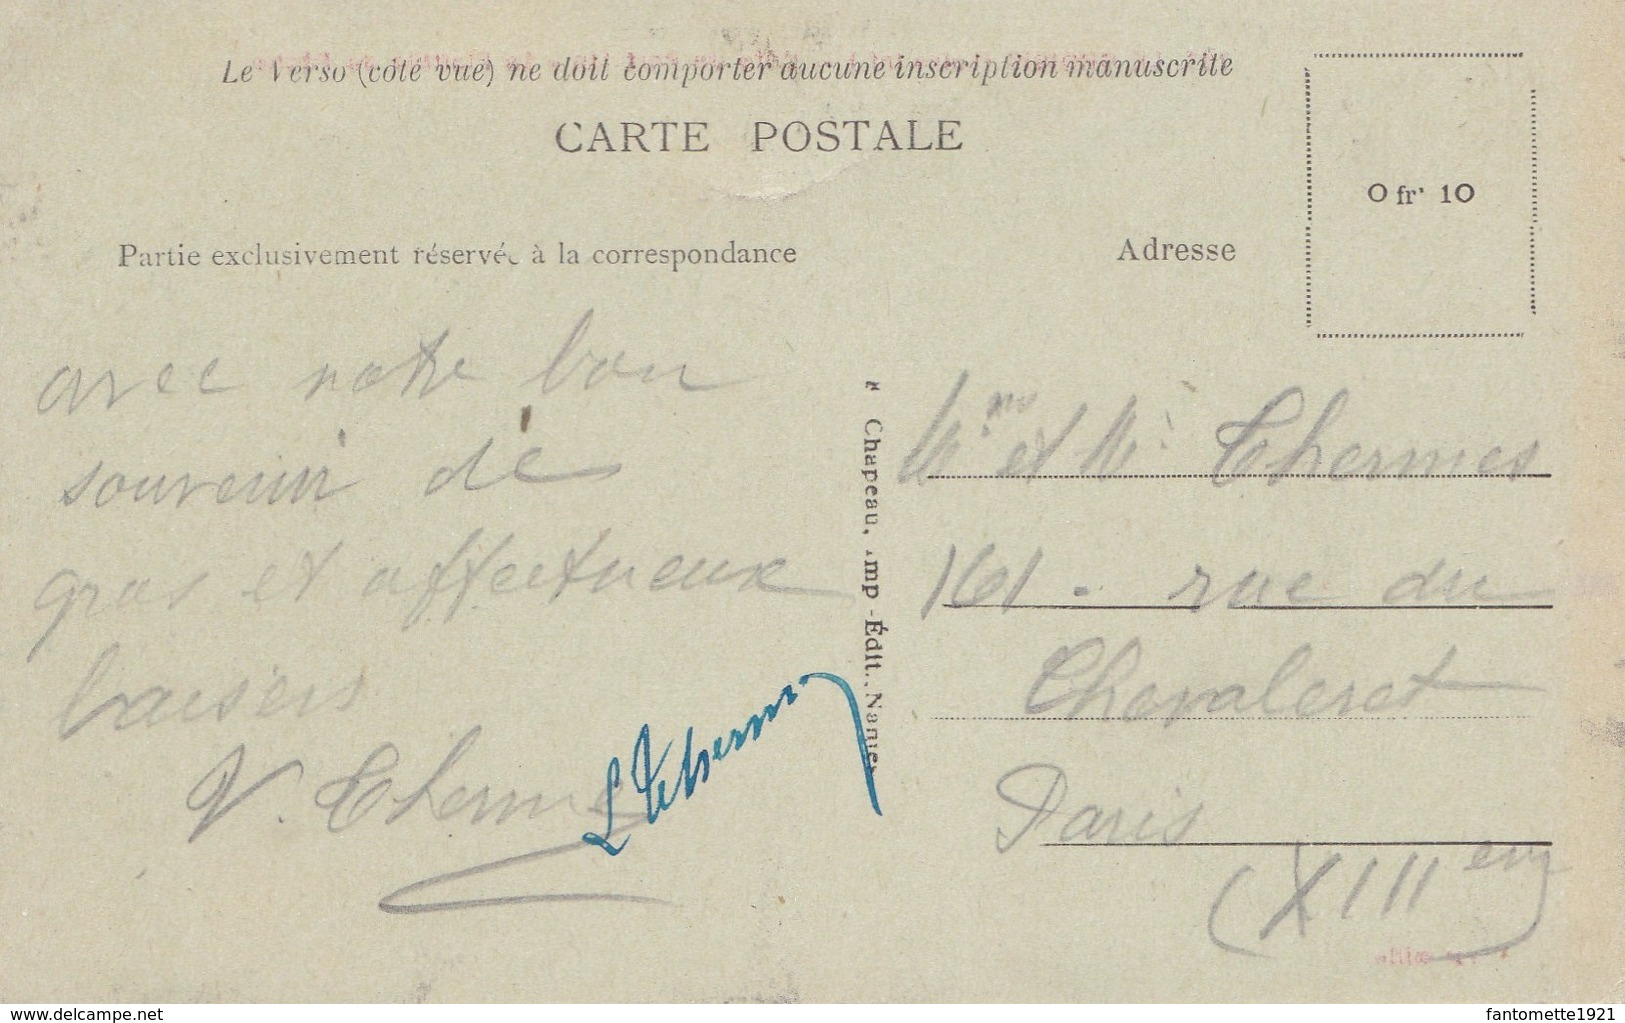 Le Verso (côté vue) ne doit comporter aucune inscription manuscrite
CARTE POSTALE
0 fr' 10
Partie exclusivement réservée à la correspondance
Adresse
avec notre bon
souvenir de
gros et affectueux
baisers
V. Thermes
L Thermes
Chapeau, Imp-Édit., Nantes
Mme et Mr Thermes
161. rue du
Chevaleret
Paris
(XIIIem)
www.delcampe.net
fantomette1921